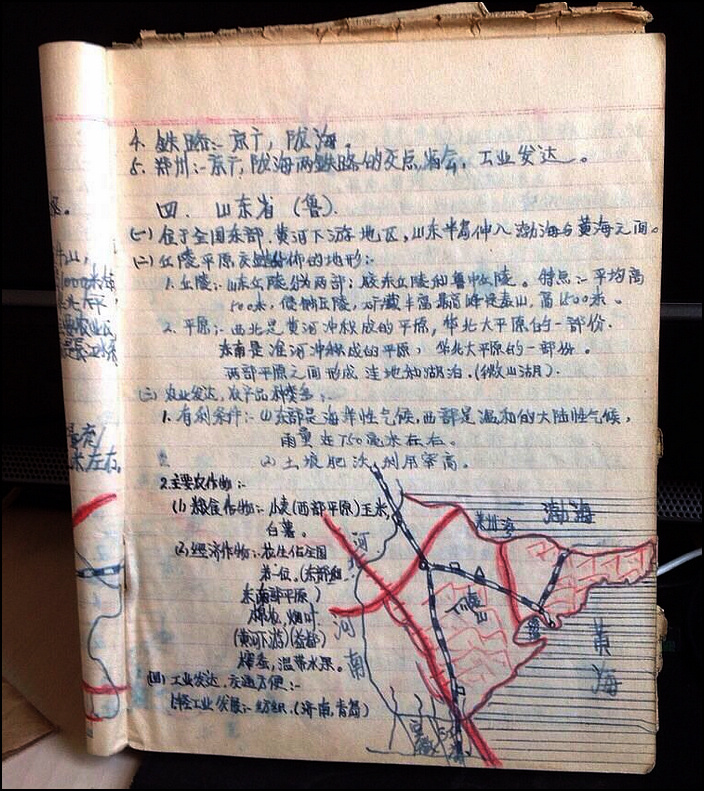 4. 铁路:- 京广, 陇海。
5. 郑州:- 京广, 陇海两铁路的交点, 省会, 工业发达。
四. 山东省 (鲁).
(一) 位于全国东部, 黄河下游地区, 山东半岛伸入渤海与黄海之间。
(二) 丘陵平原交错分佈的地形:-
1. 丘陵:- 山东丘陵分为两部: 胶东丘陵和鲁中丘陵。特点:- 平均高
500米, 侵蚀丘陵, 矿藏丰富, 最高峰是泰山, 高1500米。
2. 平原:- 西北是黄河冲积成的平原, 华北大平原的一部份.
东南是淮河冲积成的平原, 华北大平原的一部份。
两部平原之间形成洼地和湖泊. (微山湖).
(三) 农业发达, 农产品种类多:-
1. 有利条件:- 山东部是海洋性气候, 西部是温和的大陆性气候,
雨量达750毫米左右。
(2) 土壤肥沃, 利用率高。
2. 主要农作物:-
(1) 粮食作物:- 小麦 (西部平原) 玉米,
白薯。
(2) 经济作物:- 花生佔全国
第一位. (东部和
东南部平原)
棉花, 烟叶.
(黄河下游) (益都)
柞蚕, 温带水果。
(四) 工业发达, 交通方便:-
1. 轻工业发展:- 纺织. (济南, 青岛)
莱州湾
渤海
河北
河南
黄海
泰山
安徽
江苏
山,
1000米
左右,